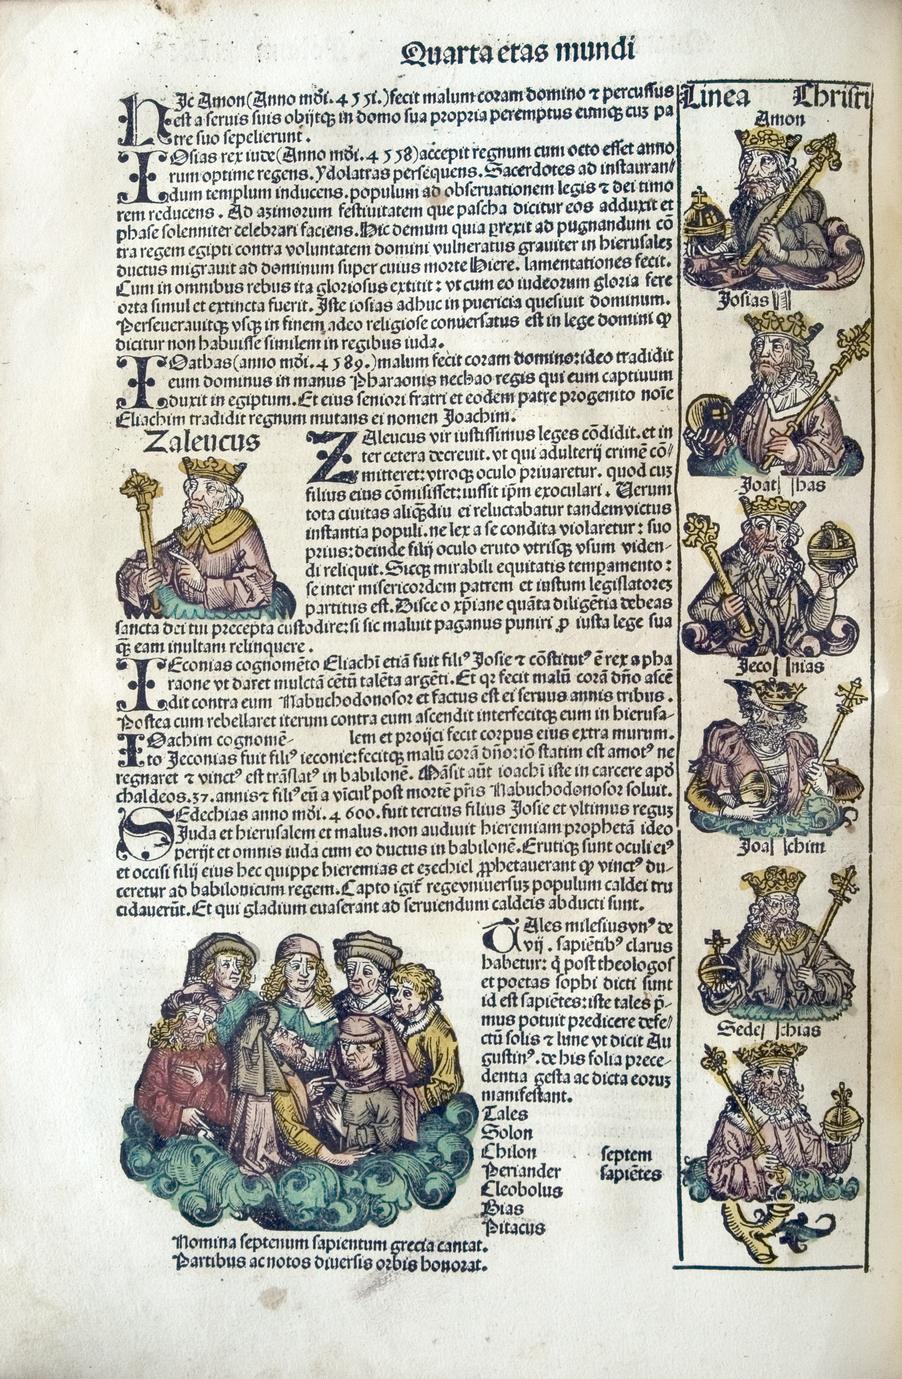 Quarta etas mundi
HIc Amon(Anno mūdi.4551.)fecit malum coram domino ⁊ percussus
est a seruis suis obijtqȝ in domo sua propria peremptus eumqȝ cuȝ pa
tre suo sepelierunt.
IOsias rex iude(Anno mūdi.4558)accepit regnum cum octo esset anno
rum optime regens. ydolatras persequens. Sacerdotes ad instauran/
dum templum inducens. populum ad obseruationem legis ⁊ dei timo
rem reducens. Ad azimorum festiuitatem que pascha dicitur eos adduxit et
phase solenniter celebrari faciens. Hic demum quia ꝑrexit ad pugnandum cō
tra regem egipti contra voluntatem domini vulneratus grauiter in hierusaleȝ
ductus migrauit ad dominum super cuius morte Hiere. lamentationes fecit.
Cum in omnibus rebus ita gloriosus extitit: vt cum eo iudeorum gloria fere
orta simul et extincta fuerit. Iste iosias adhuc in puericia quesiuit dominum.
Perseuerauitqȝ vsqȝ in finem adeo religiose conuersatus est in lege domini ꝙ
dicitur non habuisse similem in regibus iuda.
IOathas(anno mūdi.4589.)malum fecit coram domino: ideo tradidit
eum dominus in manus Pharaonis nechao regis qui eum captiuum
duxit in egiptum. Et eius seniori fratri et eodem patre progenito noīe
Eliachim tradidit regnum mutans ei nomen Joachim.
Zaleucus
ZAleucus vir iustissimus leges cōdidit. et in
ter cetera decreuit. vt qui adulterij crimē cō/
mitteret: vtroqȝ oculo priuaretur. quod cuȝ
filius eius cōmisisset: iussit ip̄m exoculari. Verum
tota ciuitas aliqȝdiu ei reluctabatur tandem victus
instantia populi. ne lex a se condita violaretur: suo
prius: deinde filij oculo eruto vtrisqȝ vsum viden-
di reliquit. Sicqȝ mirabili equitatis tempamento:
se inter misericordem patrem et iustum legislatoreȝ
partitus est. Disce o xp̄iane quāta diligētia debeas
sancta dei tui precepta custodire: si sic maluit paganus puniri ꝓ iusta lege sua
qȝ eam inultam relinquere.
IEconias cognomēto Eliachī etiā fuit filiꝰ Josie ⁊ cōstitutꝰ ē rex a pha
raone vt daret mulctā cētū talēta argēti. Et qr fecit malū corā dn̄o ascē
dit contra eum Nabuchodonosor et factus est ei seruus annis tribus.
Postea cum rebellaret iterum contra eum ascendit interfecitqȝ eum in hierusa-
lem et proijci fecit corpus eius extra murum.
IOachim cognomē-
to Jeconias fuit filiꝰ ieconie: fecitqȝ malū corā dn̄o: iō statim est amotꝰ ne
regnaret ⁊ vinctꝰ est trāslatꝰ in babilonē. Māsit aūt ioachī iste in carcere apd
chaldeos.37. annis ⁊ filiꝰ eū a vīcul̓ post mortē pr̄is Nabuchodonosor soluit.
SEdechias anno mūdi.4600. fuit tercius filius Josie et vltimus reguȝ
Juda et hierusalem et malus. non audiuit hieremiam prophetā ideo
perijt et omnis iuda cum eo ductus in babilonē. Erutiqȝ sunt oculi eiꝰ
et occisi filij eius hec quippe hieremias et ezechiel ꝓphetauerant ꝙ vinctꝰ du-
ceretur ad babilonicum regem. Capto igit̄ rege vniuersuȝ populum caldei tru
cidauerūt. Et qui gladium euaserant ad seruiendum caldeis abducti sunt.
TAles milesius vnꝰ de
vij. sapiētibꝰ clarus
habetur: q̄ post theologos
et poetas sophi dicti sunt
id est sapiētes: iste tales p̄-
mus potuit predicere defe/
ctū solis ⁊ lune vt dicit Au
gustinꝰ. de his folia prece-
dentia gesta ac dicta eoruȝ
manifestant.
Tales
Solon
Chilon septem
Periander sapiētes
Cleobolus
Bias
Pitacus
Nomina septenum sapientum grecia cantat.
Partibus ac notos diuersis orbis honorat.
Linea Christi
Amon
Josias
Joathas
Jeconias
Joachim
Sedechias